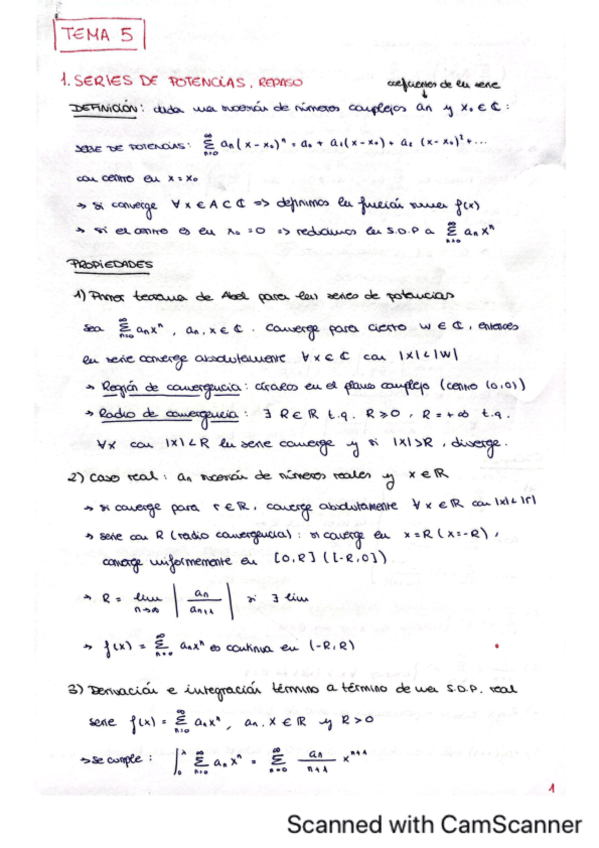 TEMA 5
1. SERIES DE POTENCIAS. REPASO
coeficientes de la serie
DEFINICIÓN: dada una sucesión de números complejos an y x₀ ∈ ℂ:
SERIE DE POTENCIAS: ∞Σn=0 an(x-x₀)ⁿ = a₀ + a₁(x-x₀) + a₂ (x-x₀)² + ...
con centro en x = x₀
→ si converge ∀x ∈ A ⊂ ℂ => definimos la función suma f(x)
→ si el centro es en x₀ = 0 => reducimos la S.D.P a ∞Σn=0 anxⁿ
PROPIEDADES
1) Primer teorema de Abel para las series de potencias
sea ∞Σn=0 anxⁿ, an, x ∈ ℂ. Converge para cierto w ∈ ℂ, entonces
la serie converge absolutamente ∀x ∈ ℂ con |x| < |w|
→ Región de convergencia: círculos en el plano complejo (centro (0,0))
→ Radio de convergencia: ∃ R ∈ ℝ t.q. R ≥ 0, R = +∞ t.q.
∀x con |x| < R la serie converge y si |x| > R, diverge.
2) Caso real: an sucesión de números reales y x ∈ ℝ
→ si converge para r ∈ ℝ, converge absolutamente ∀x ∈ ℝ con |x| < |r|
→ serie con R (radio convergencia): si converge en x = R (x = -R),
converge uniformemente en [0,R] ([-R,0])
→ R = lim n→∞ | an / an+1 | si ∃ lim
→ f(x) = ∞Σn=0 anxⁿ es continua en (-R,R)
3) Derivación e integración término a término de una S.D.P. real
serie f(x) = ∞Σn=0 anxⁿ, an, x ∈ ℝ y R > 0
→ se cumple: ∫₀ˣ ∞Σn=0 an xⁿ = ∞Σn=0 an / n+1 xⁿ⁺¹
1
Scanned with CamScanner